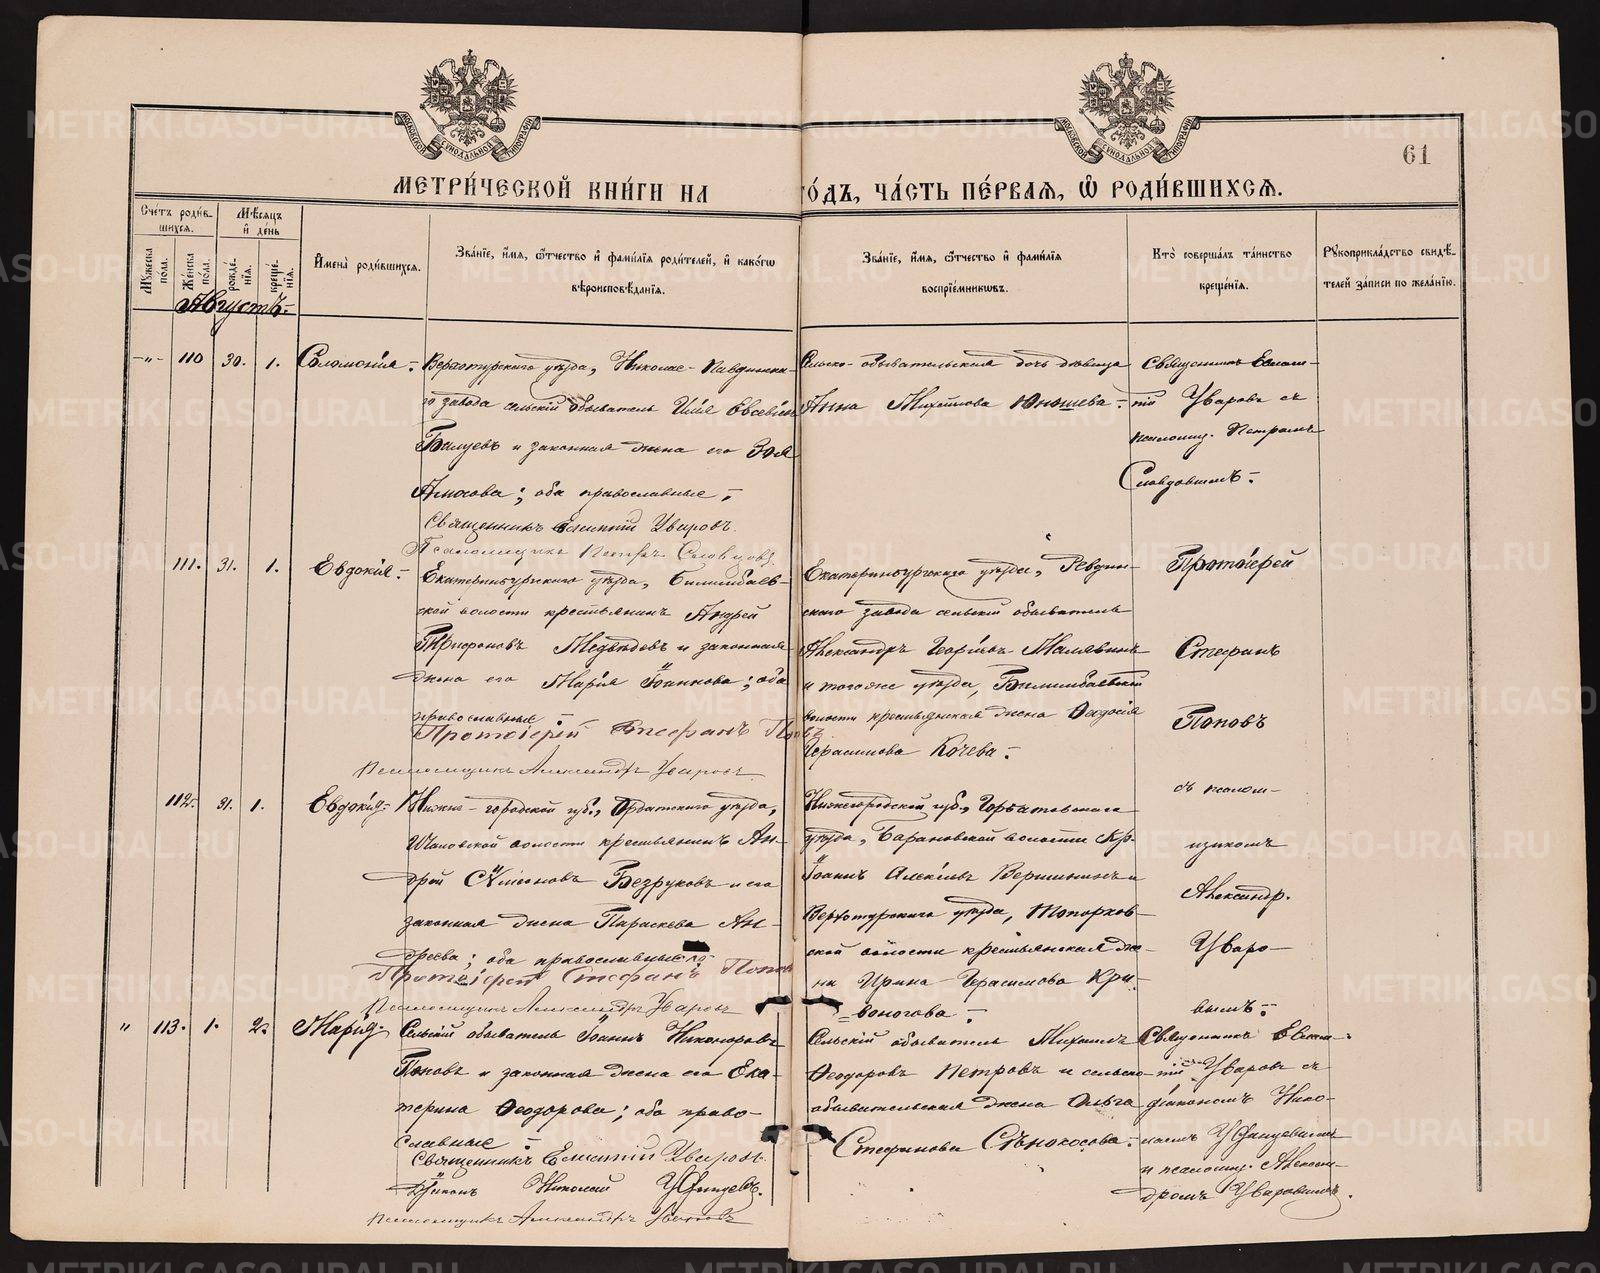 METRIKI.GASO-URAL.RU
МОСКОВСКОЙ СѴНОДАЛЬНОЙ ТИПОГРАФІИ
МОСКОВСКОЙ СѴНОДАЛЬНОЙ ТИПОГРАФІИ
61
МЕТРИ́ЧЕСКОЙ КНИ́ГИ НА
ГО́ДЪ, ЧА́СТЬ ПЕ́РВАЯ, Ѡ РОДИ́ВШИХСЯ.
Сче́тъ роди́в-
шихся.
Мѣ́сяцъ
и҆ де́нь
Мꙋ́жеска
по́ла.
Же́нска
по́ла.
рожде́-
нїя.
креще́-
нїя.
И҆мена̀ роди́вшихся.
Зва́нїе, и҆́мя, ѻ҆́тчество и҆ фами́лїя роди́телей, и҆ како́гѡ
вѣроисповѣ́данїя.
Зва́нїе, и҆́мя, ѻ҆́тчество и҆ фами́лїя
воспрїе́мникѡвъ.
Кто̀ соверша́лъ та́инство
креще́нїя.
Рꙋкоприкла́дство свидѣ́-
телей за́писи по жела́нїю.
Августъ.
-"- 110 30. 1. Соломонія.
Верхотурскаго уѣзда, Николае-Павдинска-
го завода сельскій обыватель Илія Евсевіевъ
и законная жена его Зоя
Амосова; оба православные.
Священникъ Евлампій Уваровъ.
Псаломщикъ Петръ Словцовъ.
Сельско-обывательская дочь дѣвица
Анна Михеимова Юношева.
Священникъ Евлам-
пій Уваровъ съ
псаломщ. Петромъ
Словцовымъ.
111. 31. 1. Евдокія.
Екатеринбургскаго уѣзда, Билимбаев-
ской волости крестьянинъ Андрей
Трифоновъ Медвѣдевъ и законная
жена его Марія Іоаннова; оба
православные
Протоіерей Стефанъ Поповъ
Псаломщикъ Александръ Уваровъ
Екатеринбургскаго уѣзда, Ревдин-
скаго завода сельскій обыватель
Александръ Георгіевъ Малявинъ
и тогоже уѣзда, Билимбаевской
волости крестьянская жена Ѳеодосія
Герасимова Кочева.
Протоіерей
Стефанъ
Поповъ
съ псалом-
щикомъ
Александр.
Уваро-
вымъ.
112. 31. 1. Евдокія
Нижне-городской губ., Ардатскаго уѣзда,
волости крестьянинъ Ан-
дрей Сѵмеоновъ Безруковъ и его
законная жена Параскева Ан-
дреева; оба православные
Протоіерей Стефанъ Поповъ
Псаломщикъ Александръ Уваровъ
Нижегородской губ., Горбатовскаго
уѣзда, Барановской волости кр.
Іоаннъ Алексѣевъ Вершининъ и
Верхотурскаго уѣзда, Топорков-
ской волости крестьянская же-
на Ирина Герасимова Кри-
воногова.
" 113. 1. 2. Марія.
Сельскій обыватель Іоаннъ Никоноровъ
Поповъ и законная жена его Ека-
терина Ѳеодорова; оба право-
славные
Священникъ Евлампій Уваровъ.
Діаконъ Николай
Псаломщикъ Александръ Уваровъ
Сельскій обыватель Михаилъ
Ѳеодоровъ Петровъ и сельско-
обывательская жена Ольга
Стефанова Сѣнокосова.
Священникъ Евлам-
пій Уваровъ съ
діакономъ Нико-
лаемъ
и псаломщ. Алексан-
дромъ Уваровымъ.